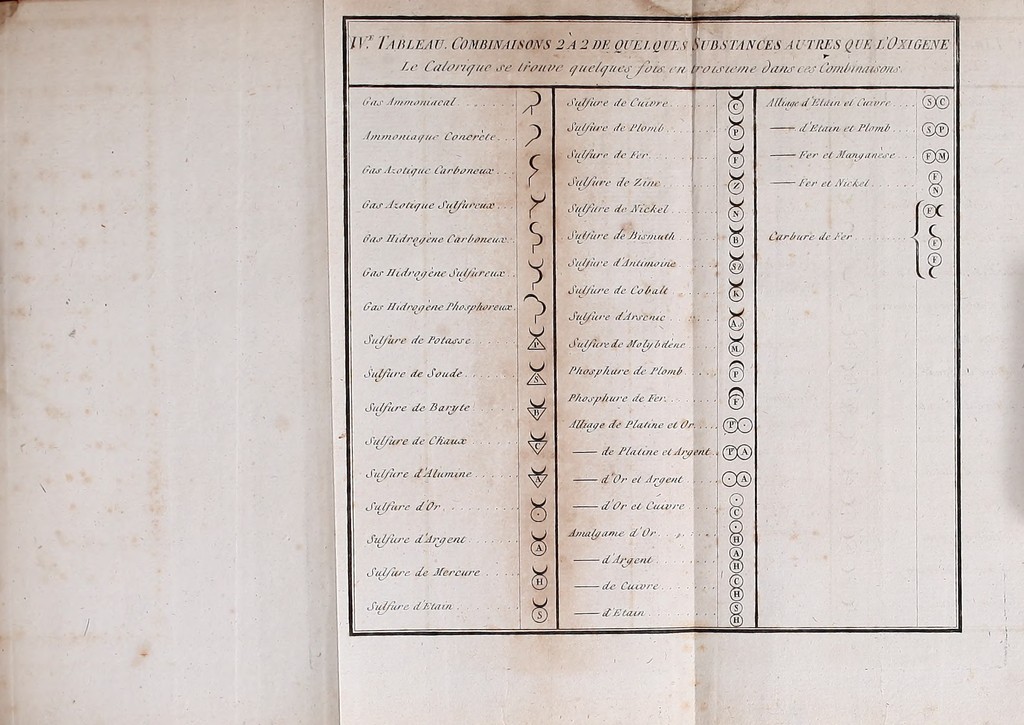 IV.E TABLEAU. COMBINAISONS 2 À 2 DE QUELQUES SUBSTANCES AUTRES QUE L'OXIGENE
Le Calorique se trouve quelques fois en troisieme dans ces Combinaisons.
Gas Ammoniacal
Ammoniaque Concrète
Gas Azotique Carboneux
Gas Azotique Sulfureux
Gas Hidrogène Carboneux
Gas Hidrogène Sulfureux
Gas Hidrogène Phosphoreux
Sulfure de Potasse P
Sulfure de Soude S
Sulfure de Baryte B
Sulfure de Chaux C
Sulfure d'Alumine A
Sulfure d'Or
Sulfure d'Argent A
Sulfure de Mercure H
Sulfure d'Etain S
Sulfure de Cuivre C
Sulfure de Plomb P
Sulfure de Fer F
Sulfure de Zinc Z
Sulfure de Nickel N
Sulfure de Bismuth B
Sulfure d'Antimoine
Sulfure de Cobalt K
Sulfure d'Arsenic A.
Sulfure de Molybdène M.
Phosphure de Plomb P
Phosphure de Fer F
Alliage de Platine et Or P
— de Platine et Argent P A
— d'Or et Argent A
— d'Or et Cuivre C
Amalgame d'Or H
— d'Argent A H
— de Cuivre C H
— d'Etain S H
Alliage d'Etain et Cuivre S C
— d'Etain et Plomb S P
— Fer et Manganèse F M
— Fer et Nickel F N
Carbure de Fer F F F